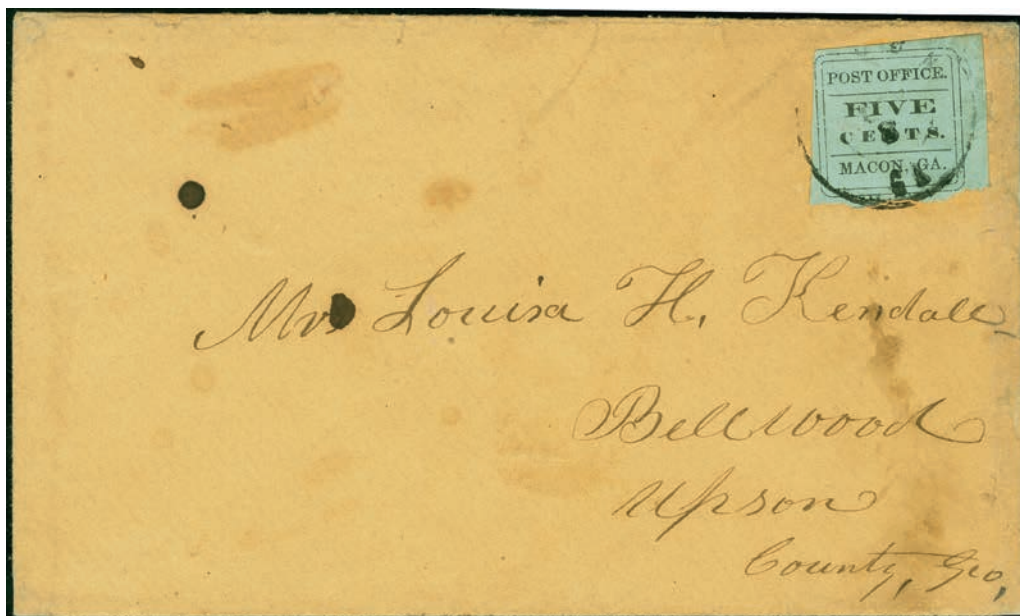 POST OFFICE.
FIVE
CENTS.
MACON, GA.
Mrs Louisa H. Kendall
Bellwood
Upson
County, Geo,